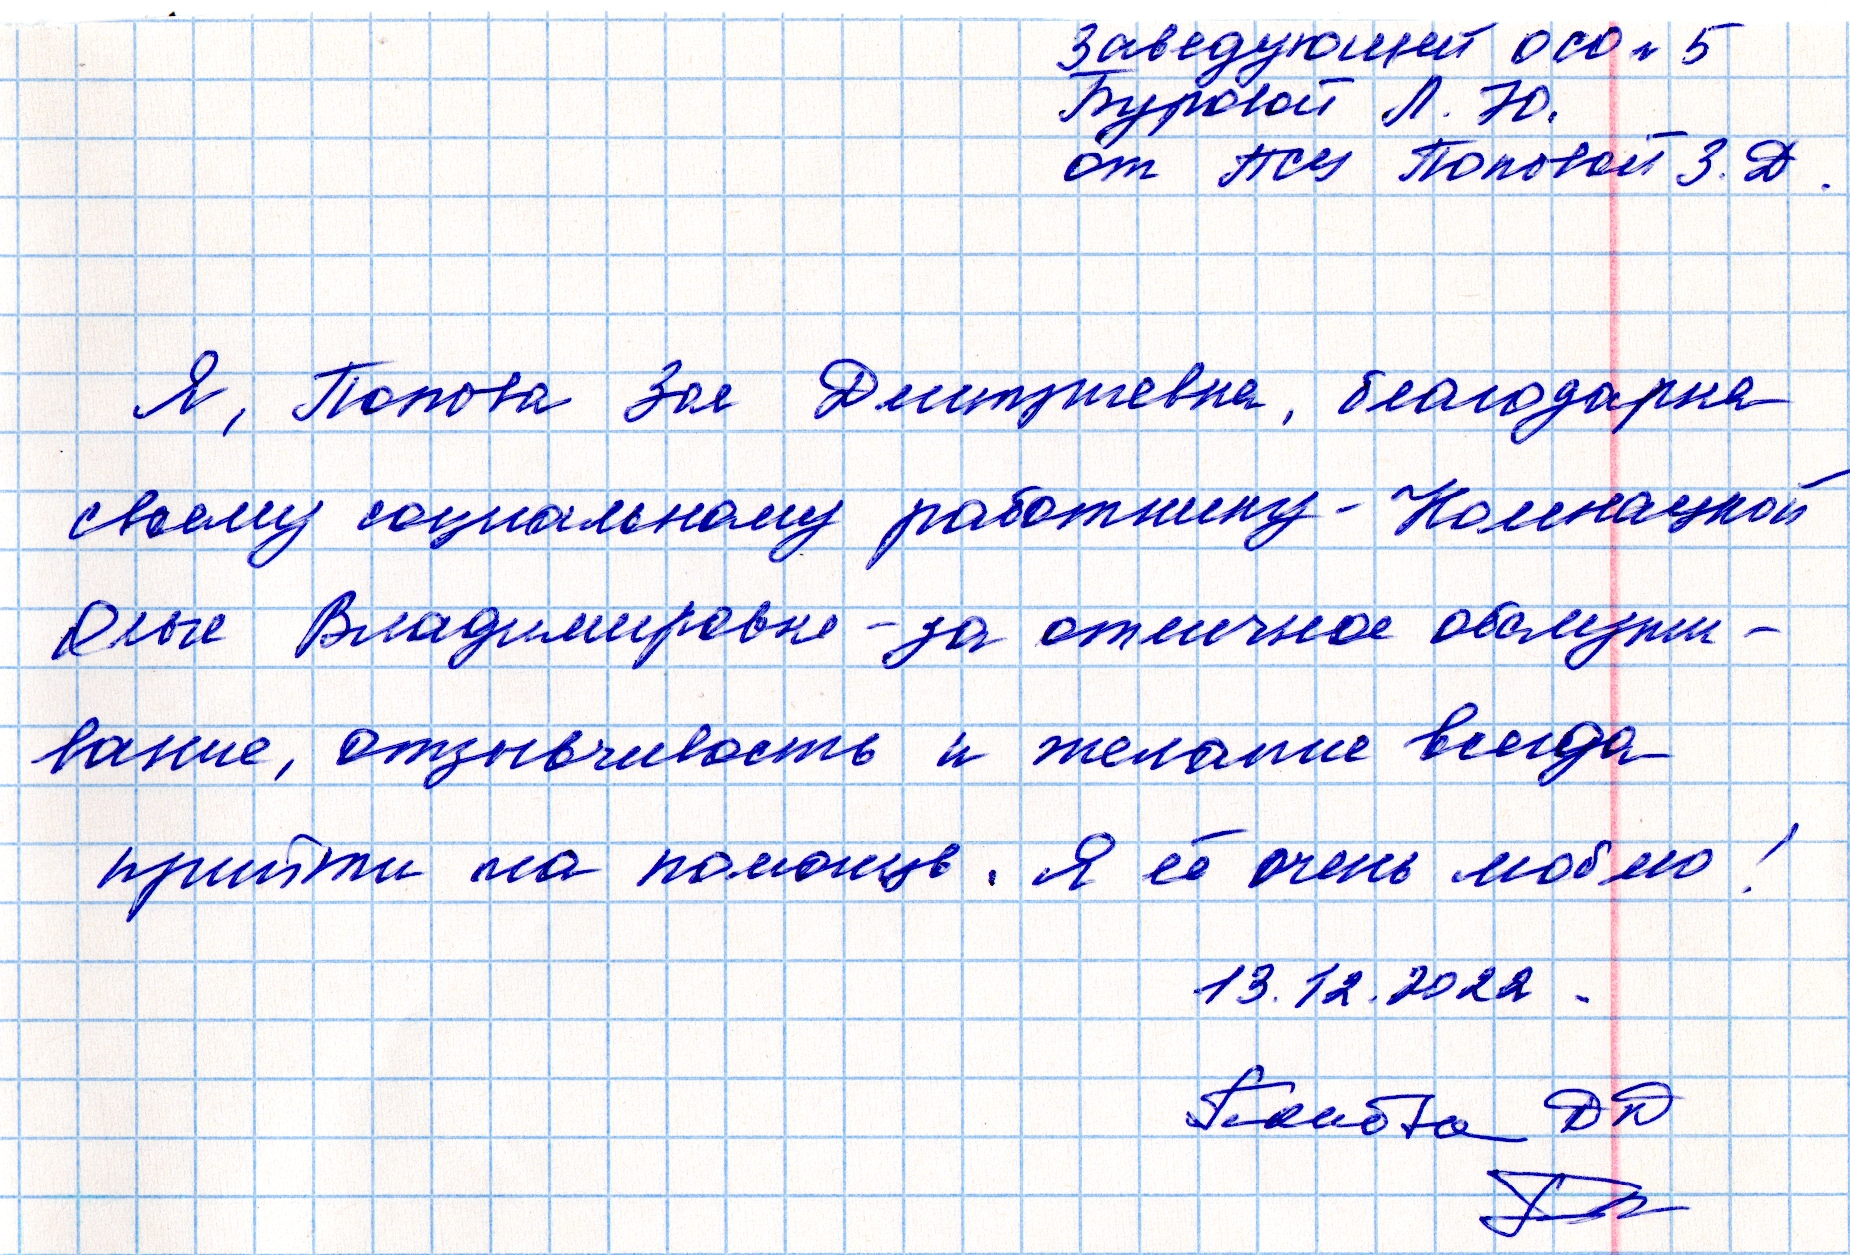 Заведующей ОСО № 5
Буровой Л. Ю.
от ПСУ Поповой З. Д.
Я, Попова Зоя Дмитриевна, благодарна
своему социальному работнику - Комнацкой
Юлие Владимировне - за отличное обслужи-
вание, отзывчивость и желание всегда
прийти на помощь. Я её очень люблю!
13.12.2022.